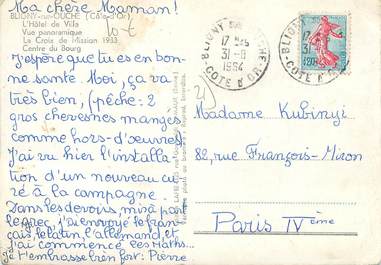 Ma chère Maman!
BLIGNY-sur-OUCHE (Côte-d'Or)
L'Hôtel de Ville
Vue panoramique
La Croix de Mission 1933
Centre du Bourg
J'espère que tu es en bon-
ne santé. Moi, ça va
très bien, (pêche: 2
gros chevesnes mangés
comme hors-d'œuvres)
J'ai vu hier l'installa
tion d'un nouveau cu-
ré à la campagne.
Dans les devoirs, mis à part
le grec, j'ai envoyé le fran-
çais, le latin, l'allemand, et
j'ai commencé les Maths...
je t'embrasse bien fort: Pierre
BLIGNY-SUR-
17 H
31-8
1964
COTE D'OR
BLIGNY
17
31
COTE D'OR
Madame Kubinyi
82, rue François-Miron
Paris IVème